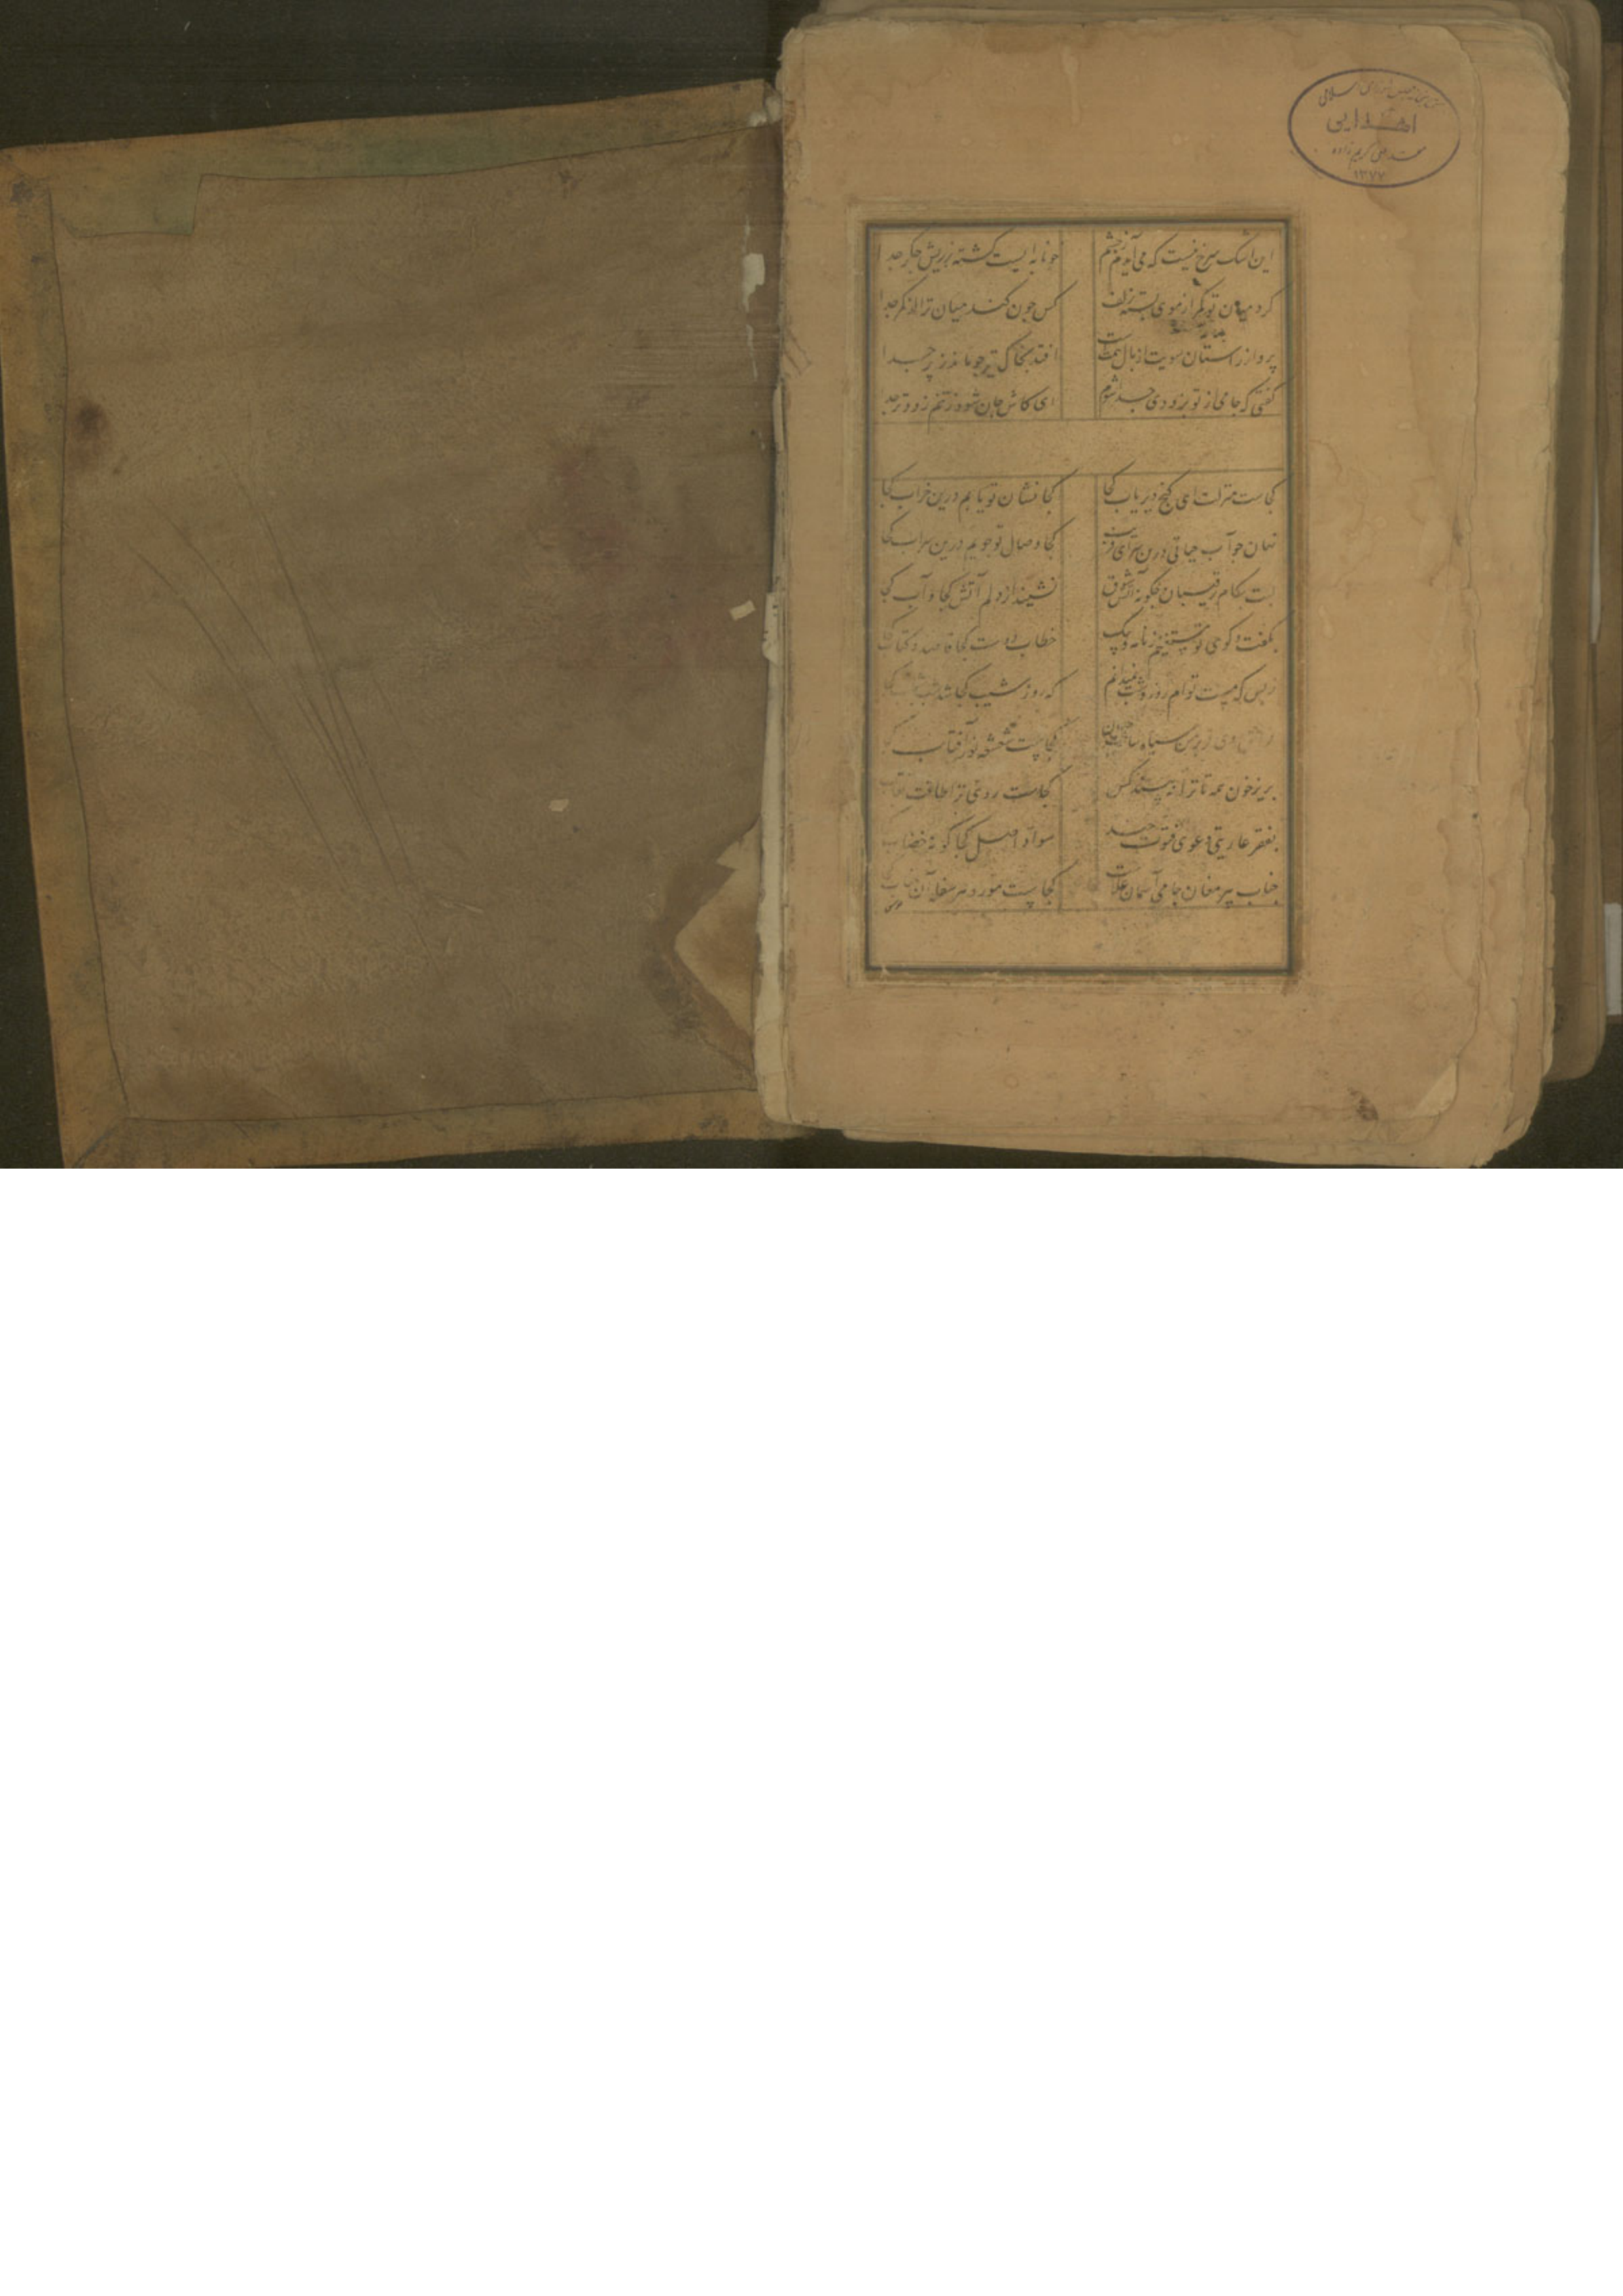 اهدایی
۱۳۷۷
این اشک سرخ نیست که می آیدم ز چشم خونابه ایست گشته ز ریش جگر جدا
گرد میان تو کمر از موی بسته زلف کس چون کند میان ترا از کمر جدا
پرواز راستان سویت از بال همت است افتد بخاک تیر چو ماند ز پر جدا
گفتی که جامی از تو بزودی جدا شوم ای کاش جان شود ز تنم زودتر جدا
کجاست منزلت ای گنج دیر یاب کجا کجا نشان تو یابم درین خراب کجا
نهان چو آب حیاتی درین سرای کجا وصال تو جویم درین سراب کجا
لبت بکام رقیبان چگونه آتش شوق نشیند از دلم آتش کجا و آب کجا
بگفت و کوی تو ز نامه و پیک خطاب دوست کجا قاصد و کتاب
ز بس که مست توام روز و شب نمیدانم که روز شب کجا شد
روی کجاست شعشعه نور آفتاب
بریز خون همه تا ترا نه بیند کس کجاست روی ترا طاقت نقاب
بفقر عاریتی دعوی فتوت چند سواد اصل کجا گونه خضاب
جناب پیر مغان جامی آسمان علاست کجاست مورد هر سفله آن جناب